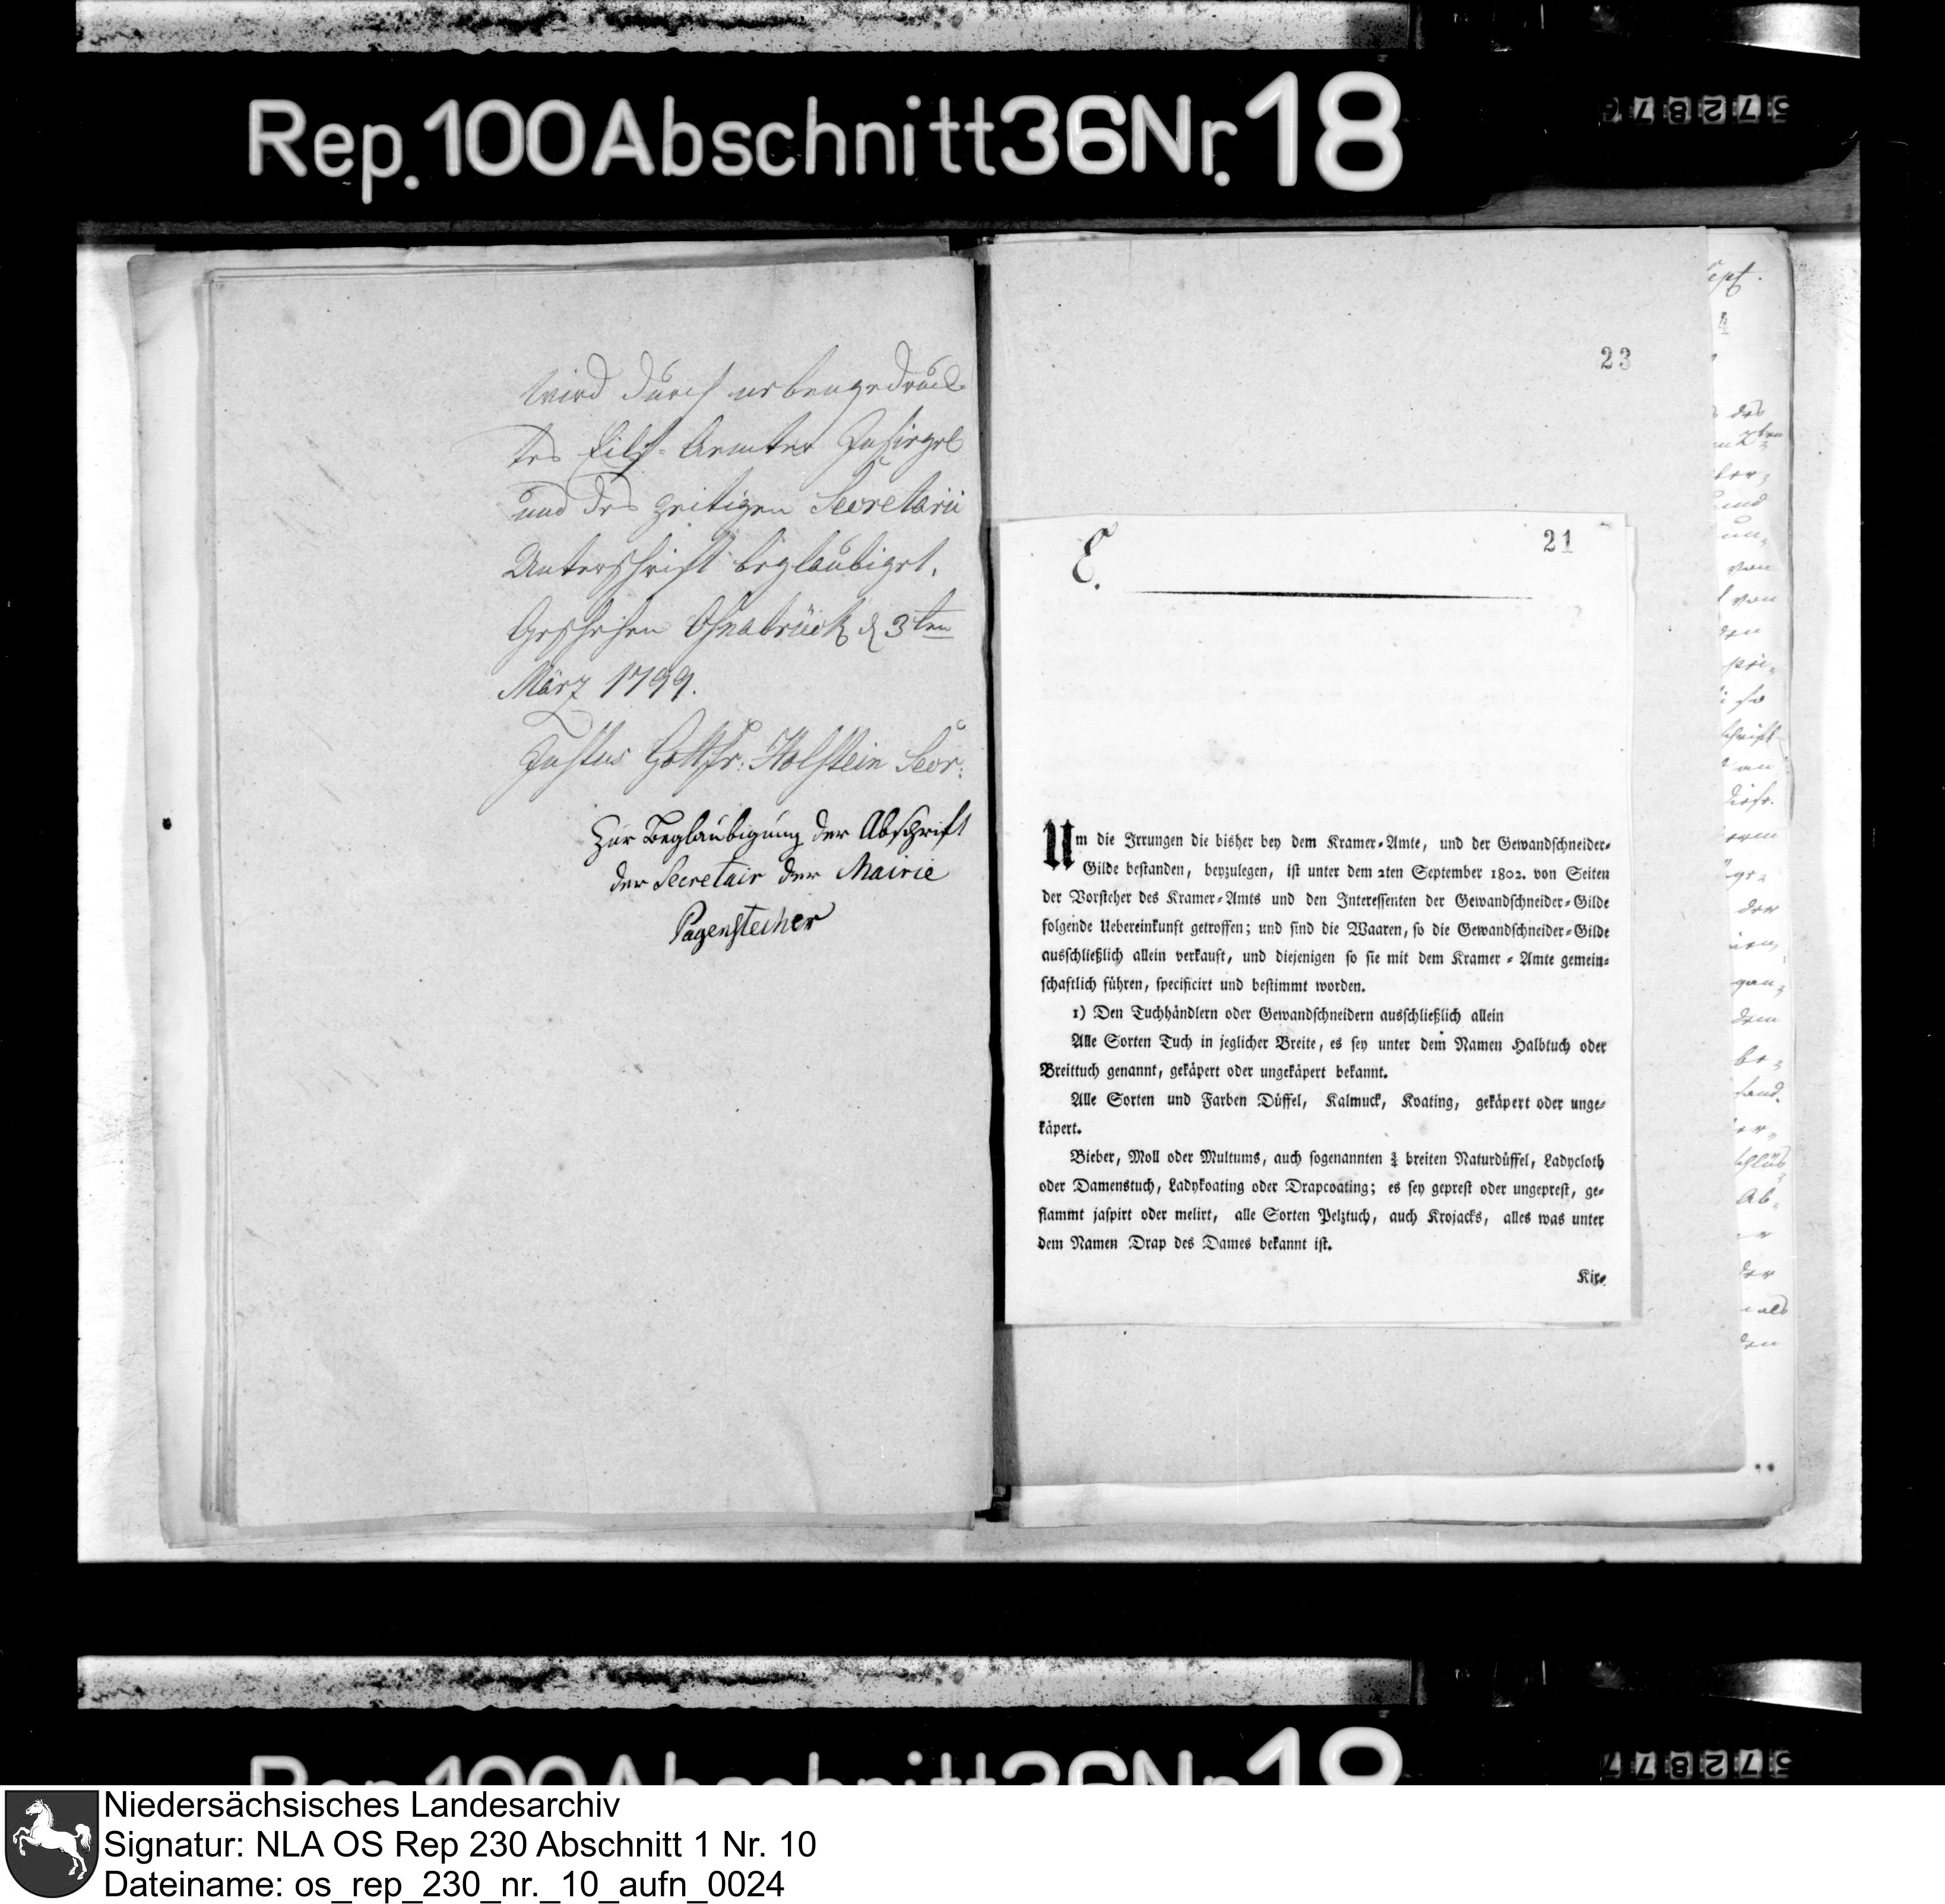 Rep. 100 Abschnitt 36 Nr. 18
wird durch nebengedruck-
tes Eilf-Aemter Insiegel
und des zeitigen Secretarii
Unterschrift beglaubiget.
Geschehen Osnabrück d 3ten
März 1799.
Justus Gottfr: Holstein Secr:
Zur Beglaubigung der Abschrift
der Secretair der Mairie
Pagenstecher
23
E.
21
Um die Irrungen die bisher bey dem Kramer-Amte, und der Gewandschneider-
Gilde bestanden, beyzulegen, ist unter dem 2ten September 1802. von Seiten
der Vorsteher des Kramer-Amts und den Interessenten der Gewandschneider-Gilde
folgende Uebereinkunft getroffen; und sind die Waaren, so die Gewandschneider-Gilde
ausschließlich allein verkauft, und diejenigen so sie mit dem Kramer-Amte gemein-
schaftlich führen, specificirt und bestimmt worden.
1) Den Tuchhändlern oder Gewandschneidern ausschließlich allein
Alle Sorten Tuch in jeglicher Breite, es sey unter dem Namen Halbtuch oder
Breittuch genannt, gekäpert oder ungekäpert bekannt.
Alle Sorten und Farben Düffel, Kalmuck, Koating, gekäpert oder unge-
käpert.
Bieber, Moll oder Multums, auch sogenannten breiten Naturdüffel, Ladycloth
oder Damenstuch, Ladykoating oder Drapcoating; es sey geprest oder ungeprest, ge-
flammt jaspirt oder melirt, alle Sorten Pelztuch, auch Krojacks, alles was unter
dem Namen Drap des Dames bekannt ist.
Kir-
Niedersächsisches Landesarchiv
Signatur: NLA OS Rep 230 Abschnitt 1 Nr. 10
Dateiname: os_rep_230_nr._10_aufn_0024